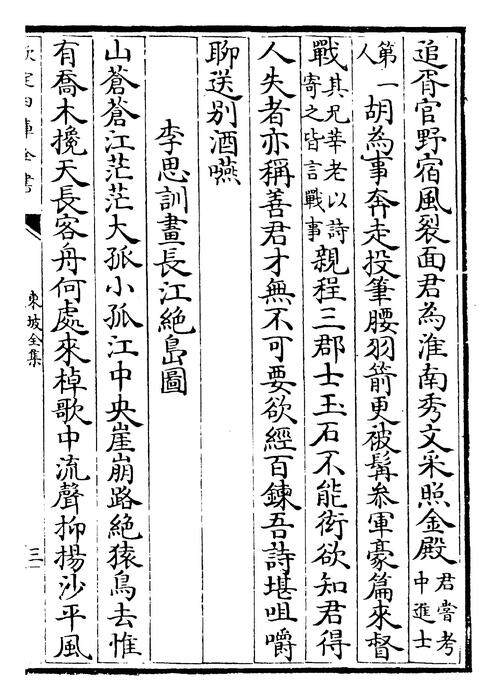 追胥官野宿風裂面君為淮南秀文采照金殿君嘗考中進士
第一人胡為事奔走投筆腰羽箭更被髯叅軍豪篇來督
戰其兄莘老以詩寄之皆言戰事親程三郡士玉石不能衒欲知君得
人失者亦稱善君才無不可要欲經百鍊吾詩堪咀嚼
聊送別酒嚥
李思訓畫長江絶島圖
山蒼蒼江茫茫大孤小孤江中央崖崩路絶猿鳥去惟
有喬木攙天長客舟何處來棹歌中流聲抑揚沙平風
欽定四庫全書
東坡全集
三